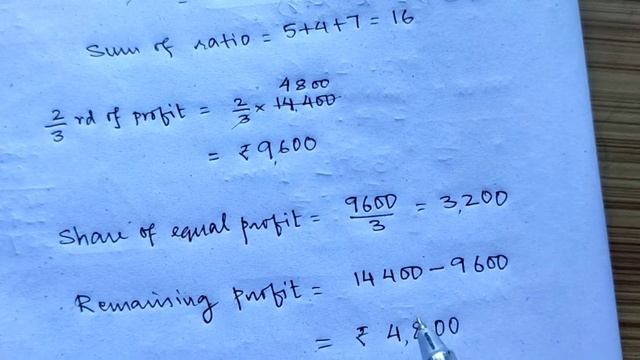 Sum of ratio = 5+4+7 = 16
4800
2/3 rd of profit = 2/3 × 14,400
= ₹9,600
Share of equal profit = 9600/3 = 3,200
Remaining profit = 14400 - 9600
= ₹ 4,800